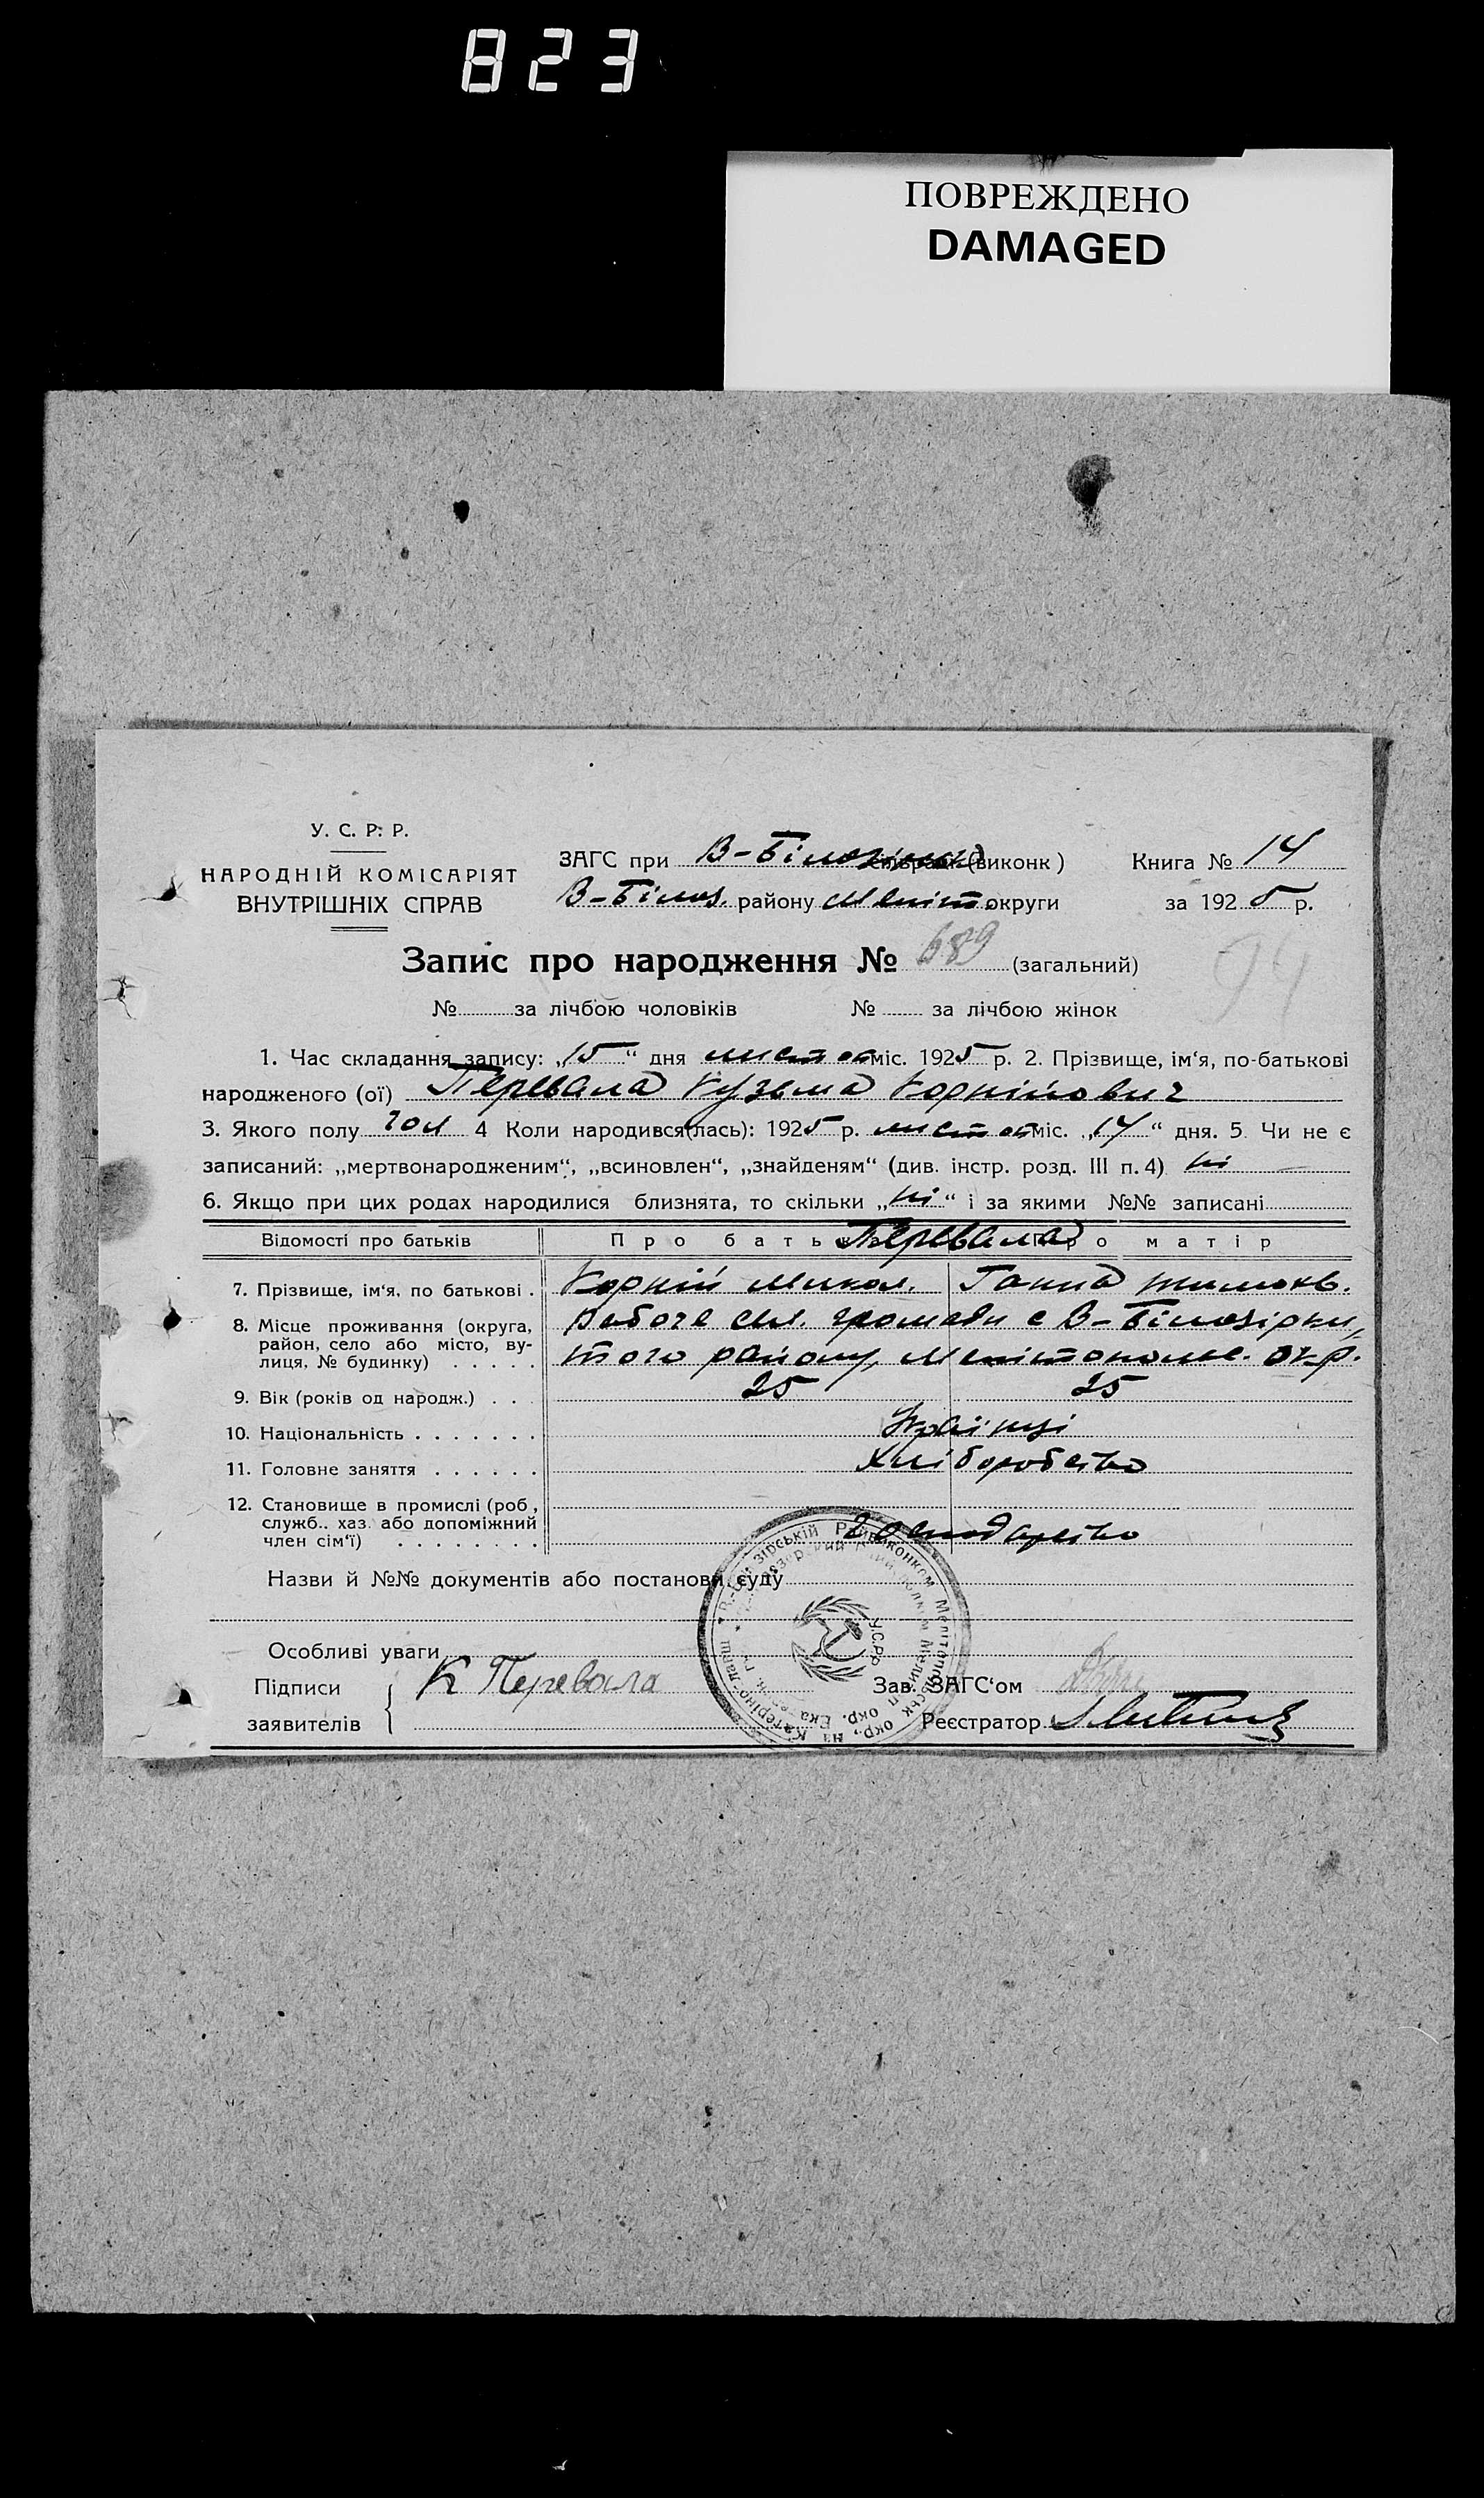 823
ПОВРЕЖДЕНО
DAMAGED
У. С. Р. Р.
НАРОДНІЙ КОМІСАРІЯТ
ВНУТРІШНІХ СПРАВ
ЗАГС при В-Білозірськ (виконк)
Книга № 14
В-Білоз. району Меліт. округи
за 1925 р.
Запис про народження № 689 (загальний)
94
№ за лічбою чоловіків № за лічбою жінок
1. Час складання запису: „15“ дня листоп міс. 1925 р. 2. Прізвище, ім‘я, по-батькові
народженого (ої) Перевала Кузьма Корнійович
3. Якого полу чол 4 Коли народився(лась): 1925 р. листоп міс. „14“ дня. 5 Чи не є
записаний: „мертвонародженим“, „всиновлен“, „знайденям“ (див. інстр. розд. III п. 4) ні
6. Якщо при цих родах народилися близнята, то скільки „ні“ і за якими №№ записані
Відомості про батьків
Про батька Перевала Про матір
7. Прізвище, ім‘я, по батькові . Корній Микол. Ганна Тимохв.
8. Місце проживання (округа, громади с В-Білозірки,
район, село або місто, ву- того району, Мелітопольс. окр.
лиця, № будинку) . . . . .
9. Вік (років од народж.) . . . 25 25
10. Національність . . . . . . . Країнці
11. Головне заняття . . . . . . Хліборобство
12. Становище в промислі (роб,
служб., хаз. або допоміжний
член сім‘ї) . . . . . . . . Господарство
Назви й №№ документів або постанови суду
Особливі уваги
Підписи К Перевала
заявителів
Зав. ЗАГС‘ом
Реєстратор